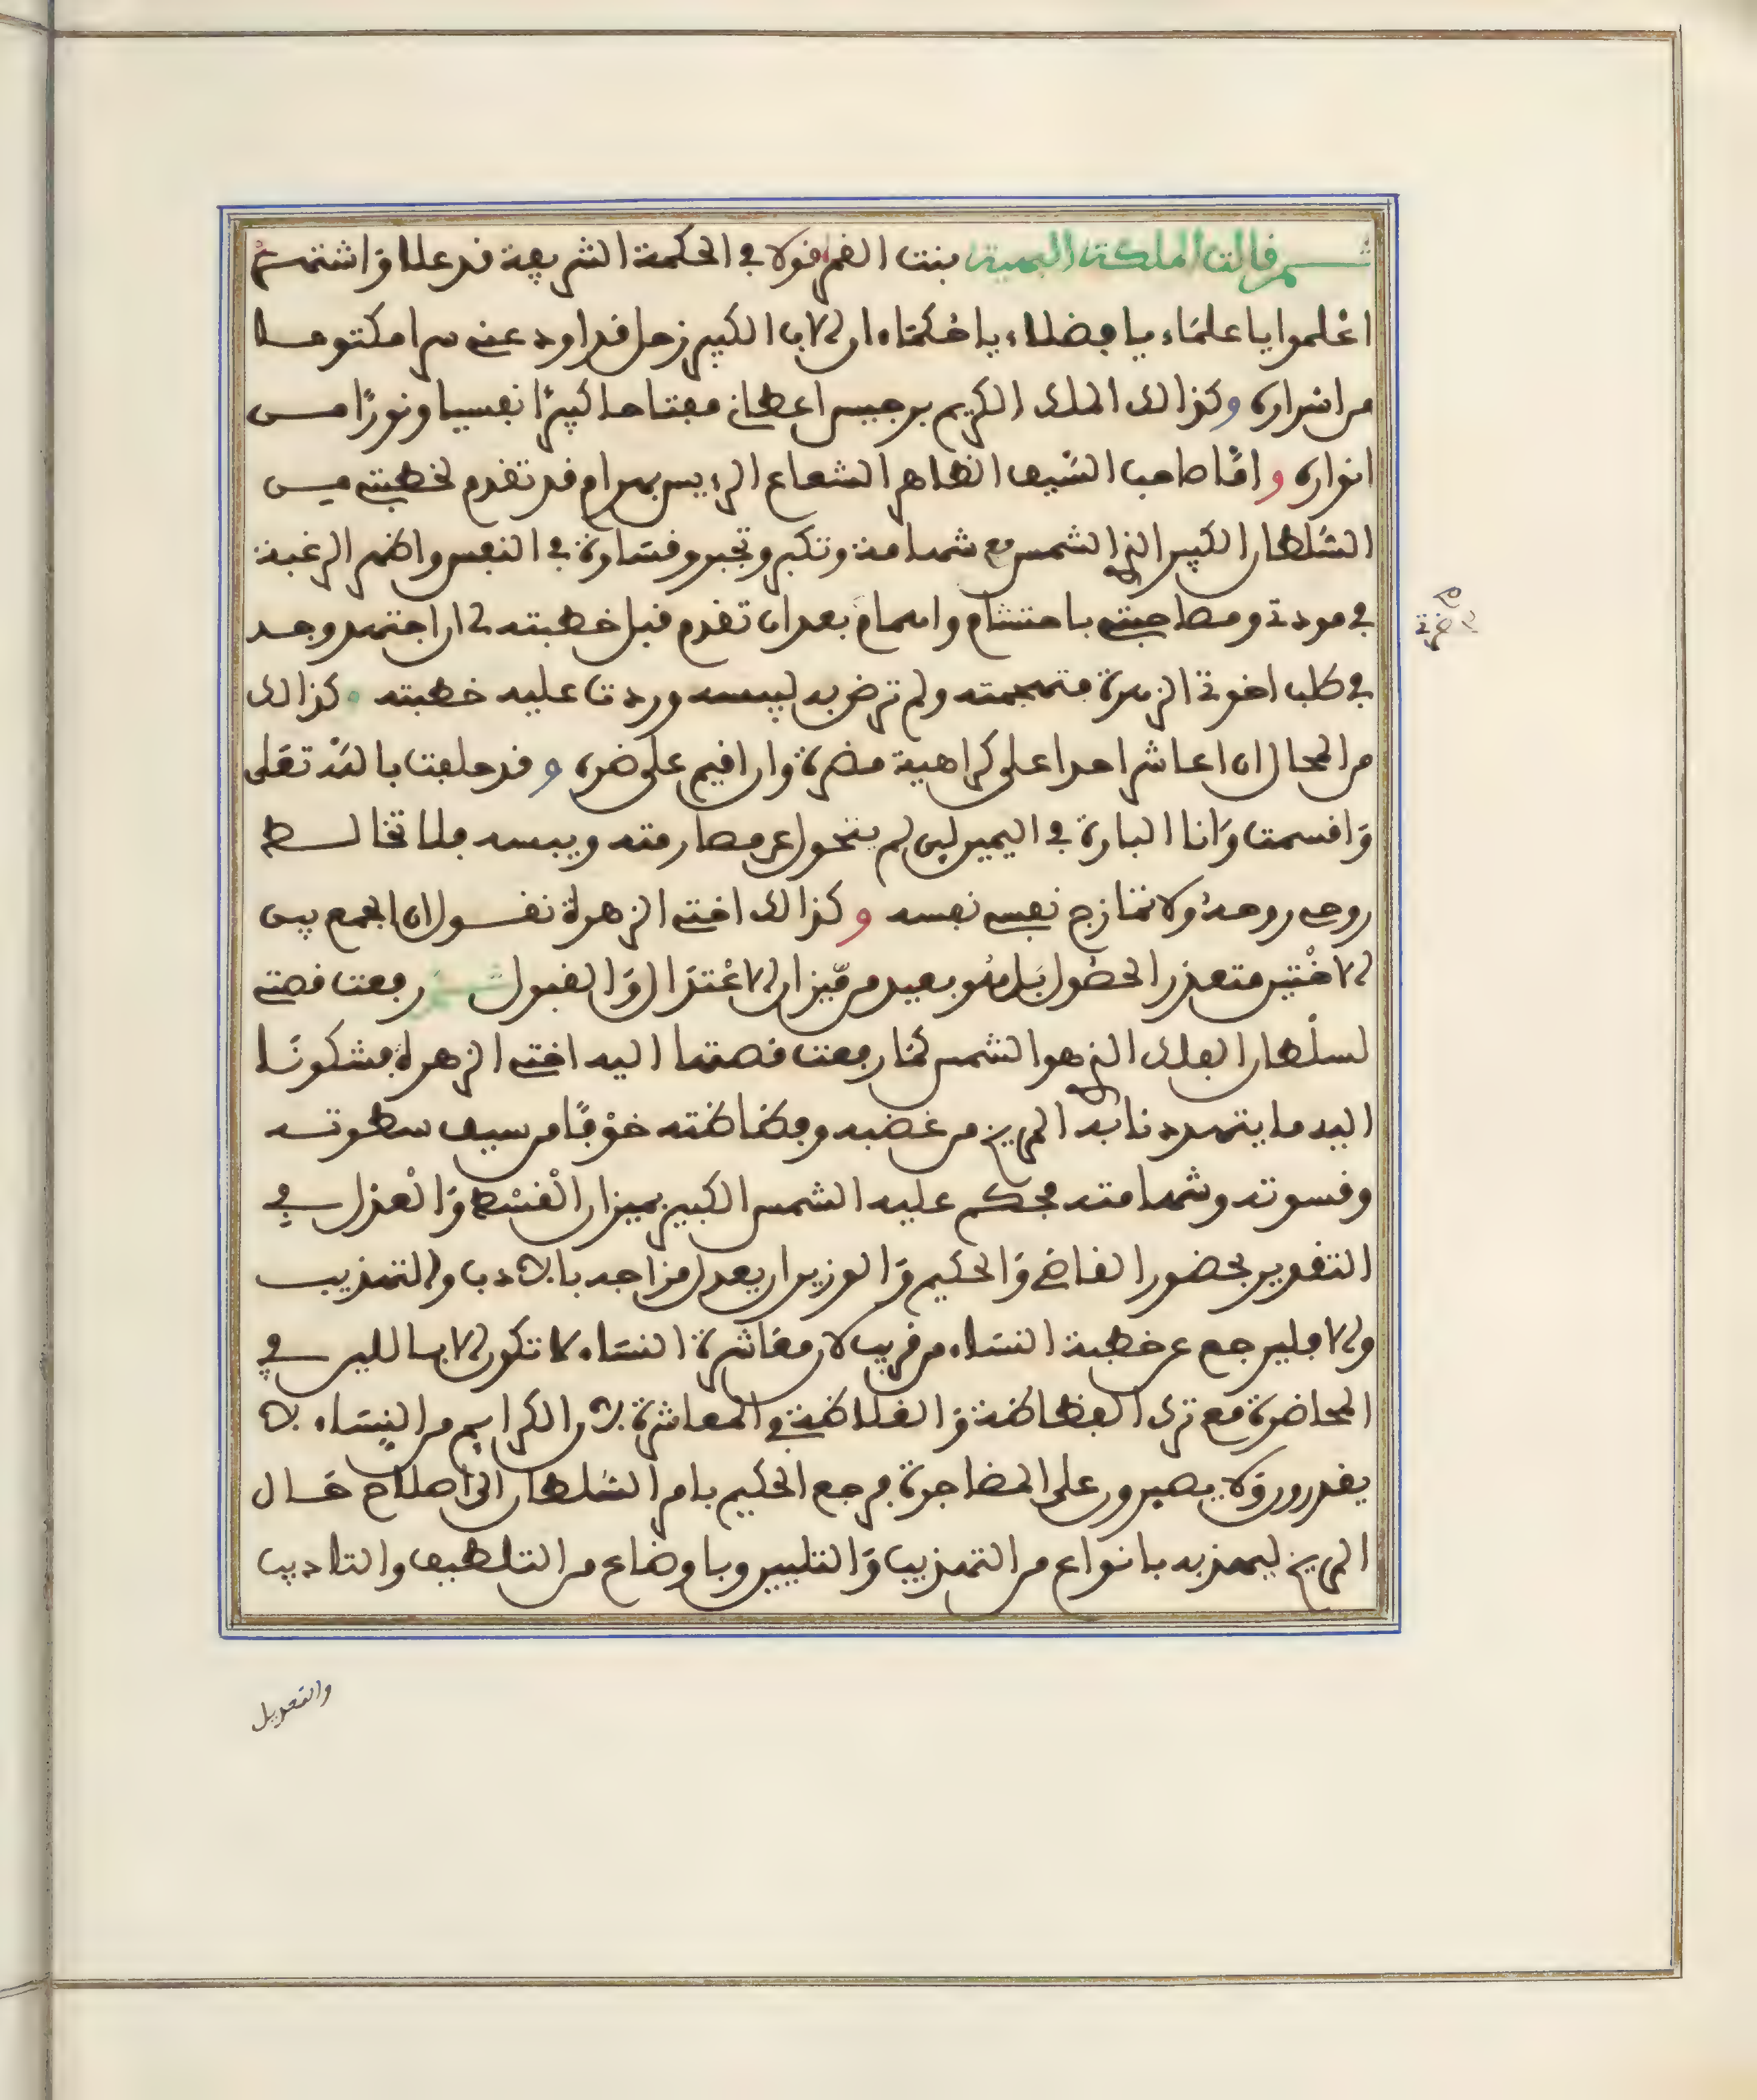 ثم قالت الملكة البهية بنت القمر قولا في الحكمة الشريعة قد علا واشتهر
اعلموا يا علماء يا فضلاء يا حكماء ان الاب الكبير زحل قد اودعني سرا مكتوما
من اسراره وكذالك الملك الكريم برجيس اعطاني مفتاحا كبيرا نفيسا ونورا من
انواره واما صاحب السيف الظاهر الشعاع الرءيس بهرام قد تقدم لخطبتي من
السلطان الكبير الذي الشمس مع شهامة وتكبر وتجبر وقساوة في النفس واظهر الرغبة
في مودتي ومصاحبتي باحتشام وابهام بعد ان تقدم قبل خطبته لي ان اجتهد وجد
في طلب اخوتي الزهرة متهجمته ولم ترض به ليبسه وردت عليه خطبته وكذالك
من المحال ان اعاشر احدا على كراهية مضرة وان اقيم على ضره وقد حلفت بالله تعلى
واقسمت وانا البارة في اليمين لين لم يتحول عن مصارمته ويبسه فلا تخالط
روحي روحه ولا تمازج نفسي نفسه وكذالك اختي الزهرة تقول ان الجمع بين
الاختين متعذر الحصول بل هو بعيد من ميزان الاعتدال والقبول ثم رفعت قصتي
لسلطان الفلك الذي هو الشمس كما رفعت قصتها اليه اختي الزهرة فشكونا
اليه ما يتهددنا به المريخ من غضبه وفظاظته خوفا من سيف سطوته
وقسوته وشهامته فحكم عليه الشمس الكبير بميزان القسط والعدل في
التقويم بحضور القاضي والحكيم والوزير ان يعدل مزاجه بالادب والتهذيب
والا فليرجع عن خطبة النساء من قريب لان معاشرة النساء لا تكون الا باللين في
المحاضرة مع ترك الفظاظة والغلاظة في المعاشرة لان الكرايم من النساء لا
يقدرون ولا يصبرون على المضاجرة فرجع الحكيم بامر السلطان الى اصلاح حال
المريخ ليهذبه بانواع من التهذيب والتليين وباوضاع من التلطيف والتاديب
والتعويل